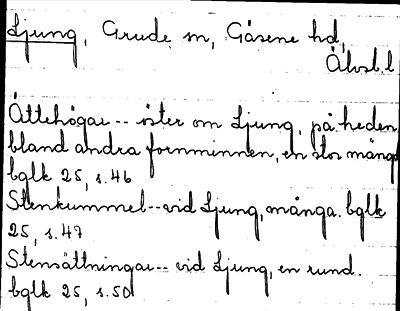 Ljung, Grude sn, Gäsene hd,
Älvsb.l
Ättehögar -- öster om Ljung, på heden,
bland andra fornminnen, en stor mängd
bglk 25, s.46
Stenkummel -- vid Ljung, många. bglk
25, s.47
Stensättningar -- vid Ljung, en rund.
bglk 25, s.50